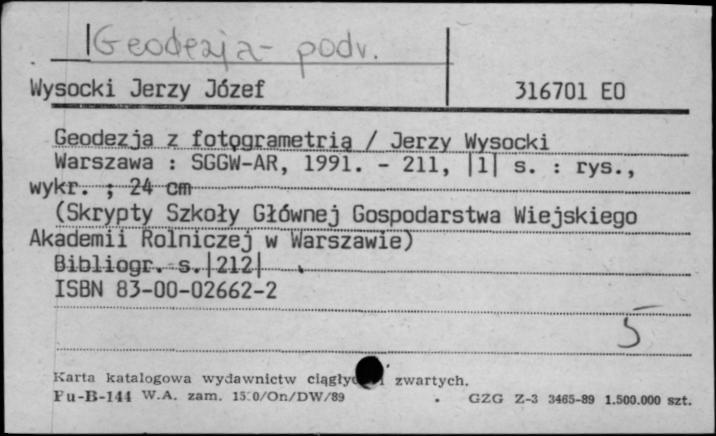 Geodezja - podr.
Wysocki Jerzy Józef 316701 EO
Geodezja z fotogrametrią / Jerzy Wysocki
Warszawa : SGGW-AR, 1991. - 211, |1| s. : rys.,
wykr. ; 24 cm
(Skrypty Szkoły Głównej Gospodarstwa Wiejskiego
Akademii Rolniczej w Warszawie)
Bibliogr. s. |212|
ISBN 83-00-02662-2
5
Karta katalogowa wydawnictw zwartych.
Pu-B-144 W.A. zam. /On/DW/89 GZG Z-3 3465-89 1.500.000 szt.